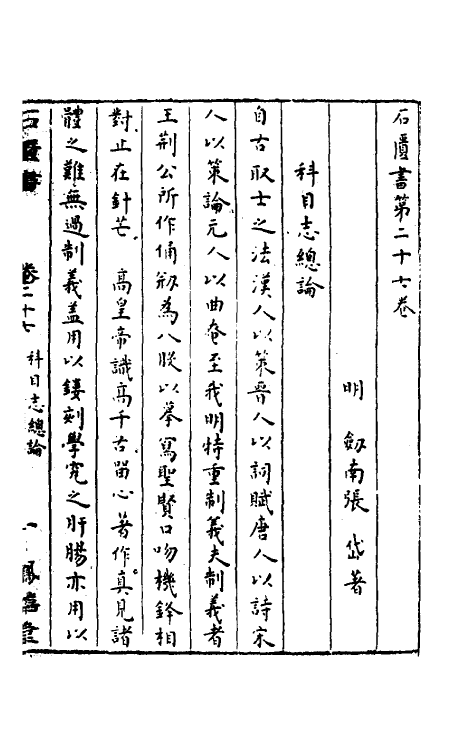 石匱書第二十七卷
明 劔南張 岱著
科目志總論
自古取士之法漢人以策晉人以詞賦唐人以詩宋
人以策論元人以曲奄至我明特重制義夫制義者
王荆公所作俑剏為八股以摹寫聖賢口吻機鋒相
對止在針芒 高皇帝識高千古留心著作真見諸
體之難無過制義盖用以鏤刻學究之肝腸亦用以
石匱書 卷二十七 科目志總論 一 鳳嬉堂